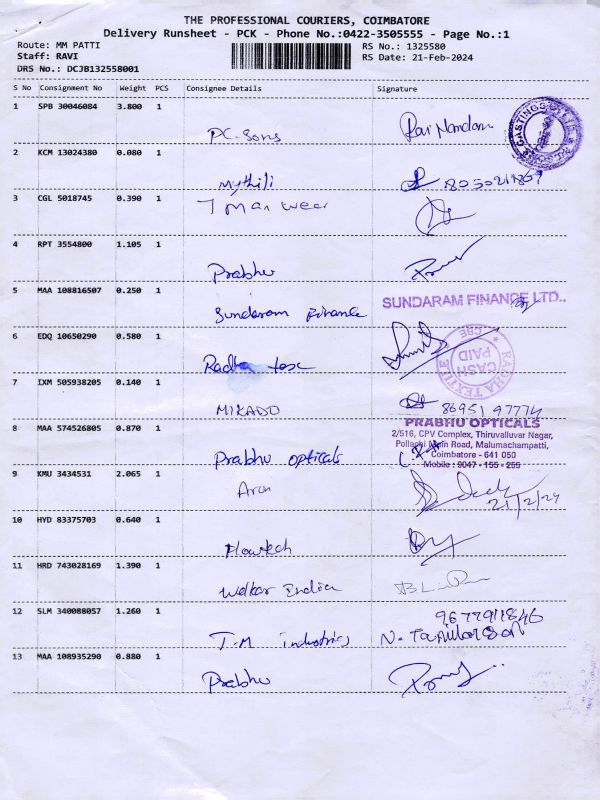 THE PROFESSIONAL COURIERS, COIMBATORE
Delivery Runsheet - PCK - Phone No.:0422-3505555 - Page No.:1
Route: MM PATTI
RS No.: 1325580
Staff: RAVI
RS Date: 21-Feb-2024
DRS No.: DCJB132558001
S No Consignment No Weight PCS Consignee Details Signature
1 SPB 30046084 3.800 1
PC-Sons
2 KCM 13024380 0.080 1
Mythili
3 CGL 5018745 0.390 1
7 Man wear
4 RPT 3554800 1.105 1
Prabhu
5 MAA 108816507 0.250 1
SUNDARAM FINANCE LTD.,
Sundaram Finance
6 EDQ 10650290 0.580 1
Radha tex
RADHA TEXTILE
CBE
CASH PAID
7 IXM 505938205 0.140 1
MIKADO 86951 97774
8 MAA 574526805 0.870 1
PRABHU OPTICALS
2/516, CPV Complex, Thiruvalluvar Nagar,
Pollachi Main Road, Malumachampatti,
Coimbatore - 641 050
Mobile : 9047 - 155 - 255
Prabhu opticals
9 KMU 3434531 2.065 1
Arun
21/2/24
10 HYD 83375703 0.640 1
Flowtech
11 HRD 743028169 1.390 1
Walkar India
12 SLM 340088057 1.260 1
9677911846
T.M industries N. Tamilarasan
13 MAA 108935290 0.880 1
Prabhu